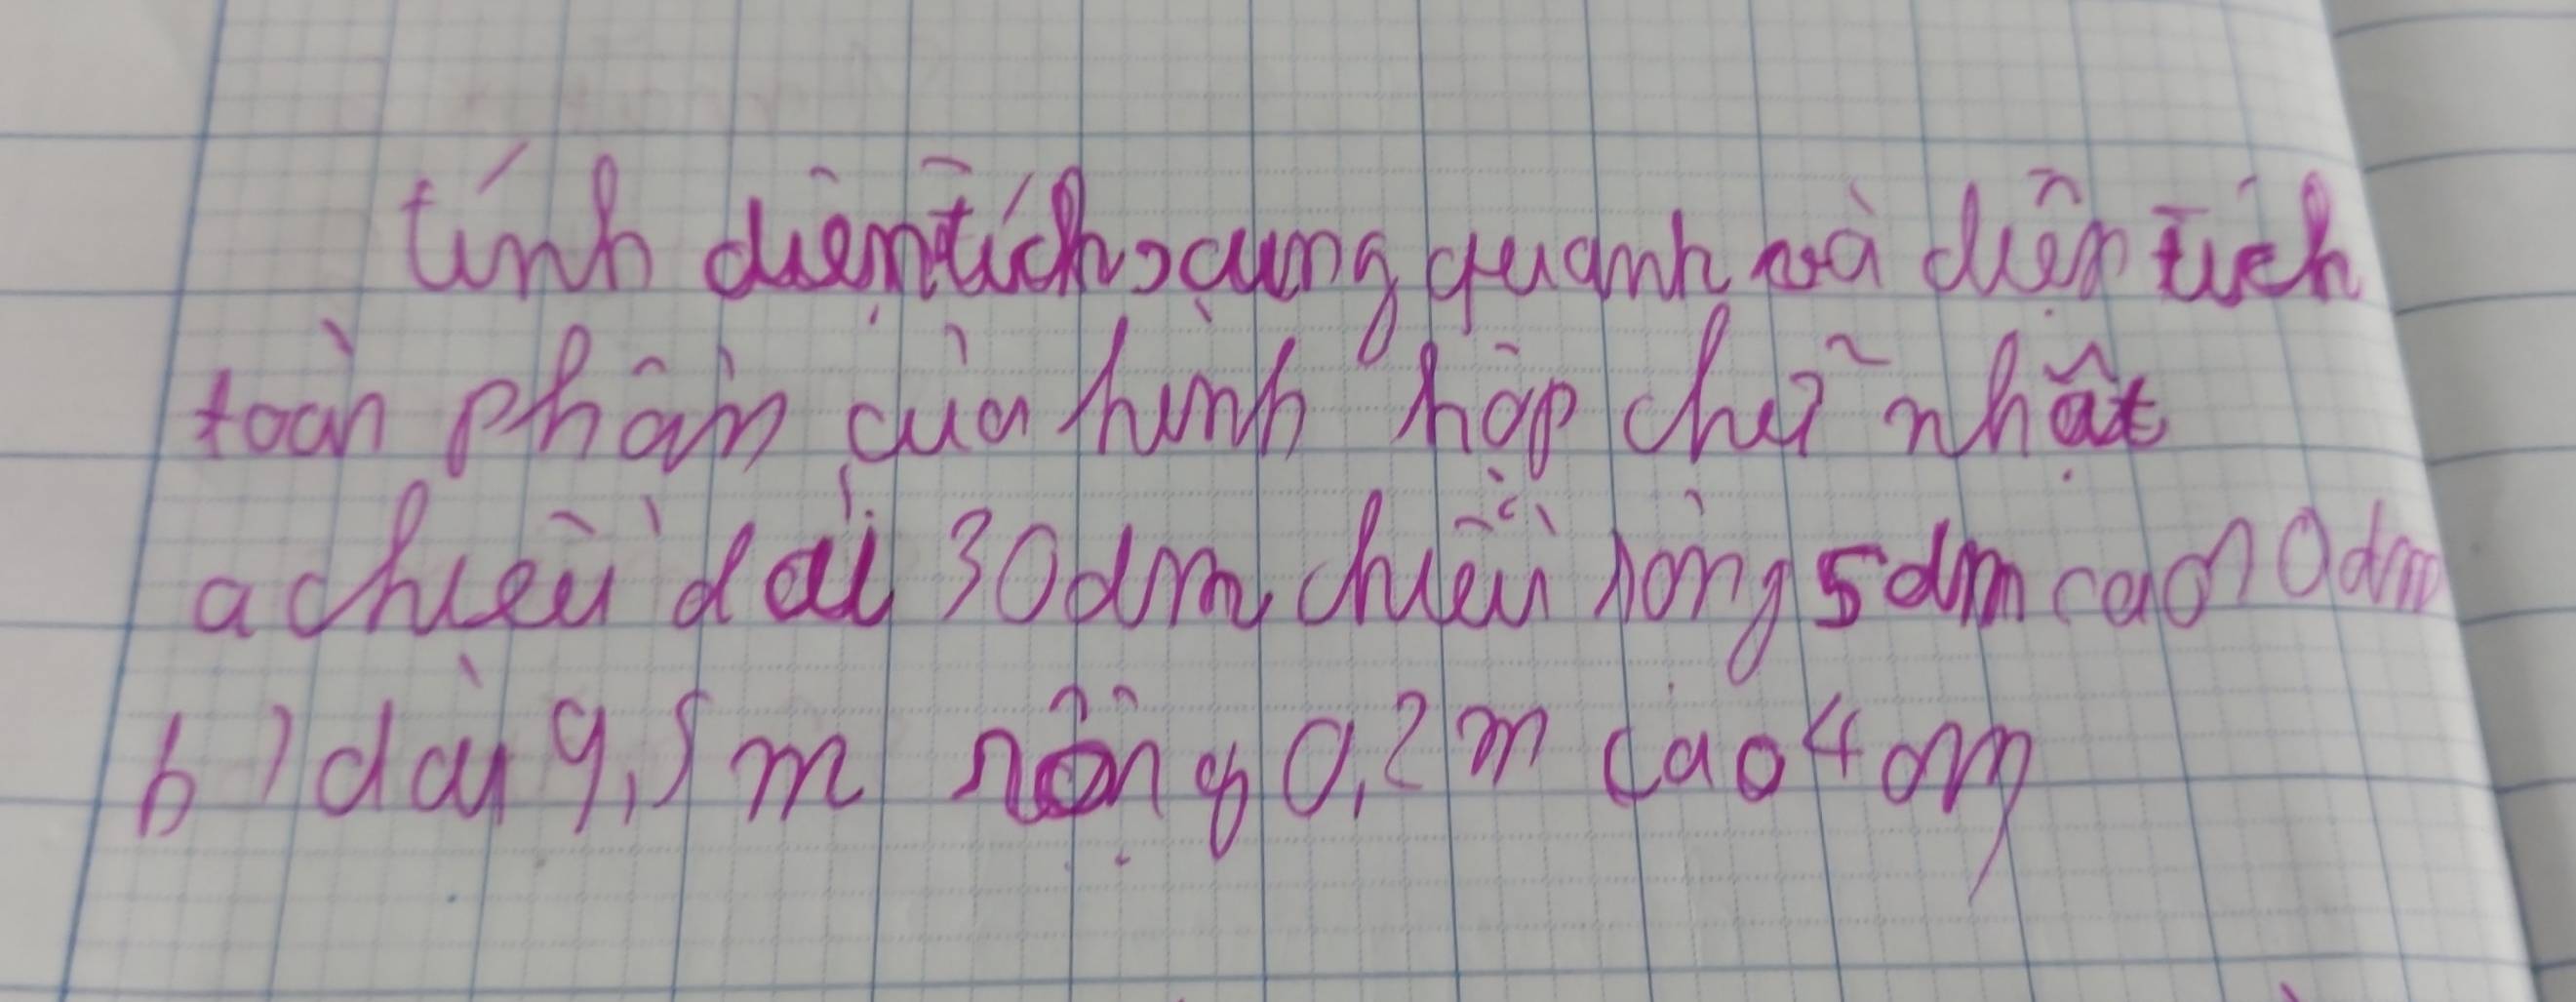 tính diện tích xung quanh và diện tích
toàn phần của hình hộp chữ nhật
a chiều dài 30dm chiều rộng 5dm cao 10dm
b) dài 9,5m rộng 0,2m cao 4